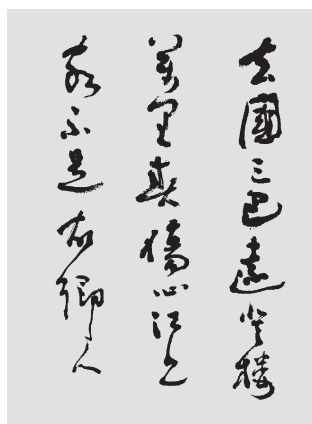 去國三巴遠登樓
萬里春傷心江上
客不是故鄉人